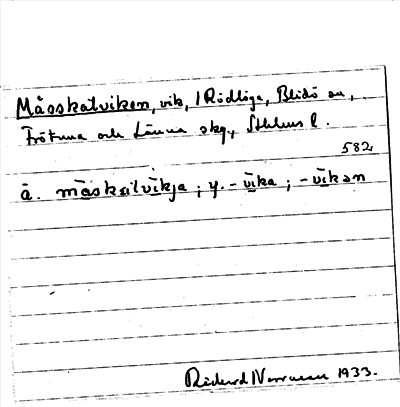 Måsskatviken, vik, i Rödlöga, Blidö sn,
Frötuna och Länna skg., Sthlms l.
582
ä. måskatvikja; y. -vika; -vikən
Rickard Norrman 1933.